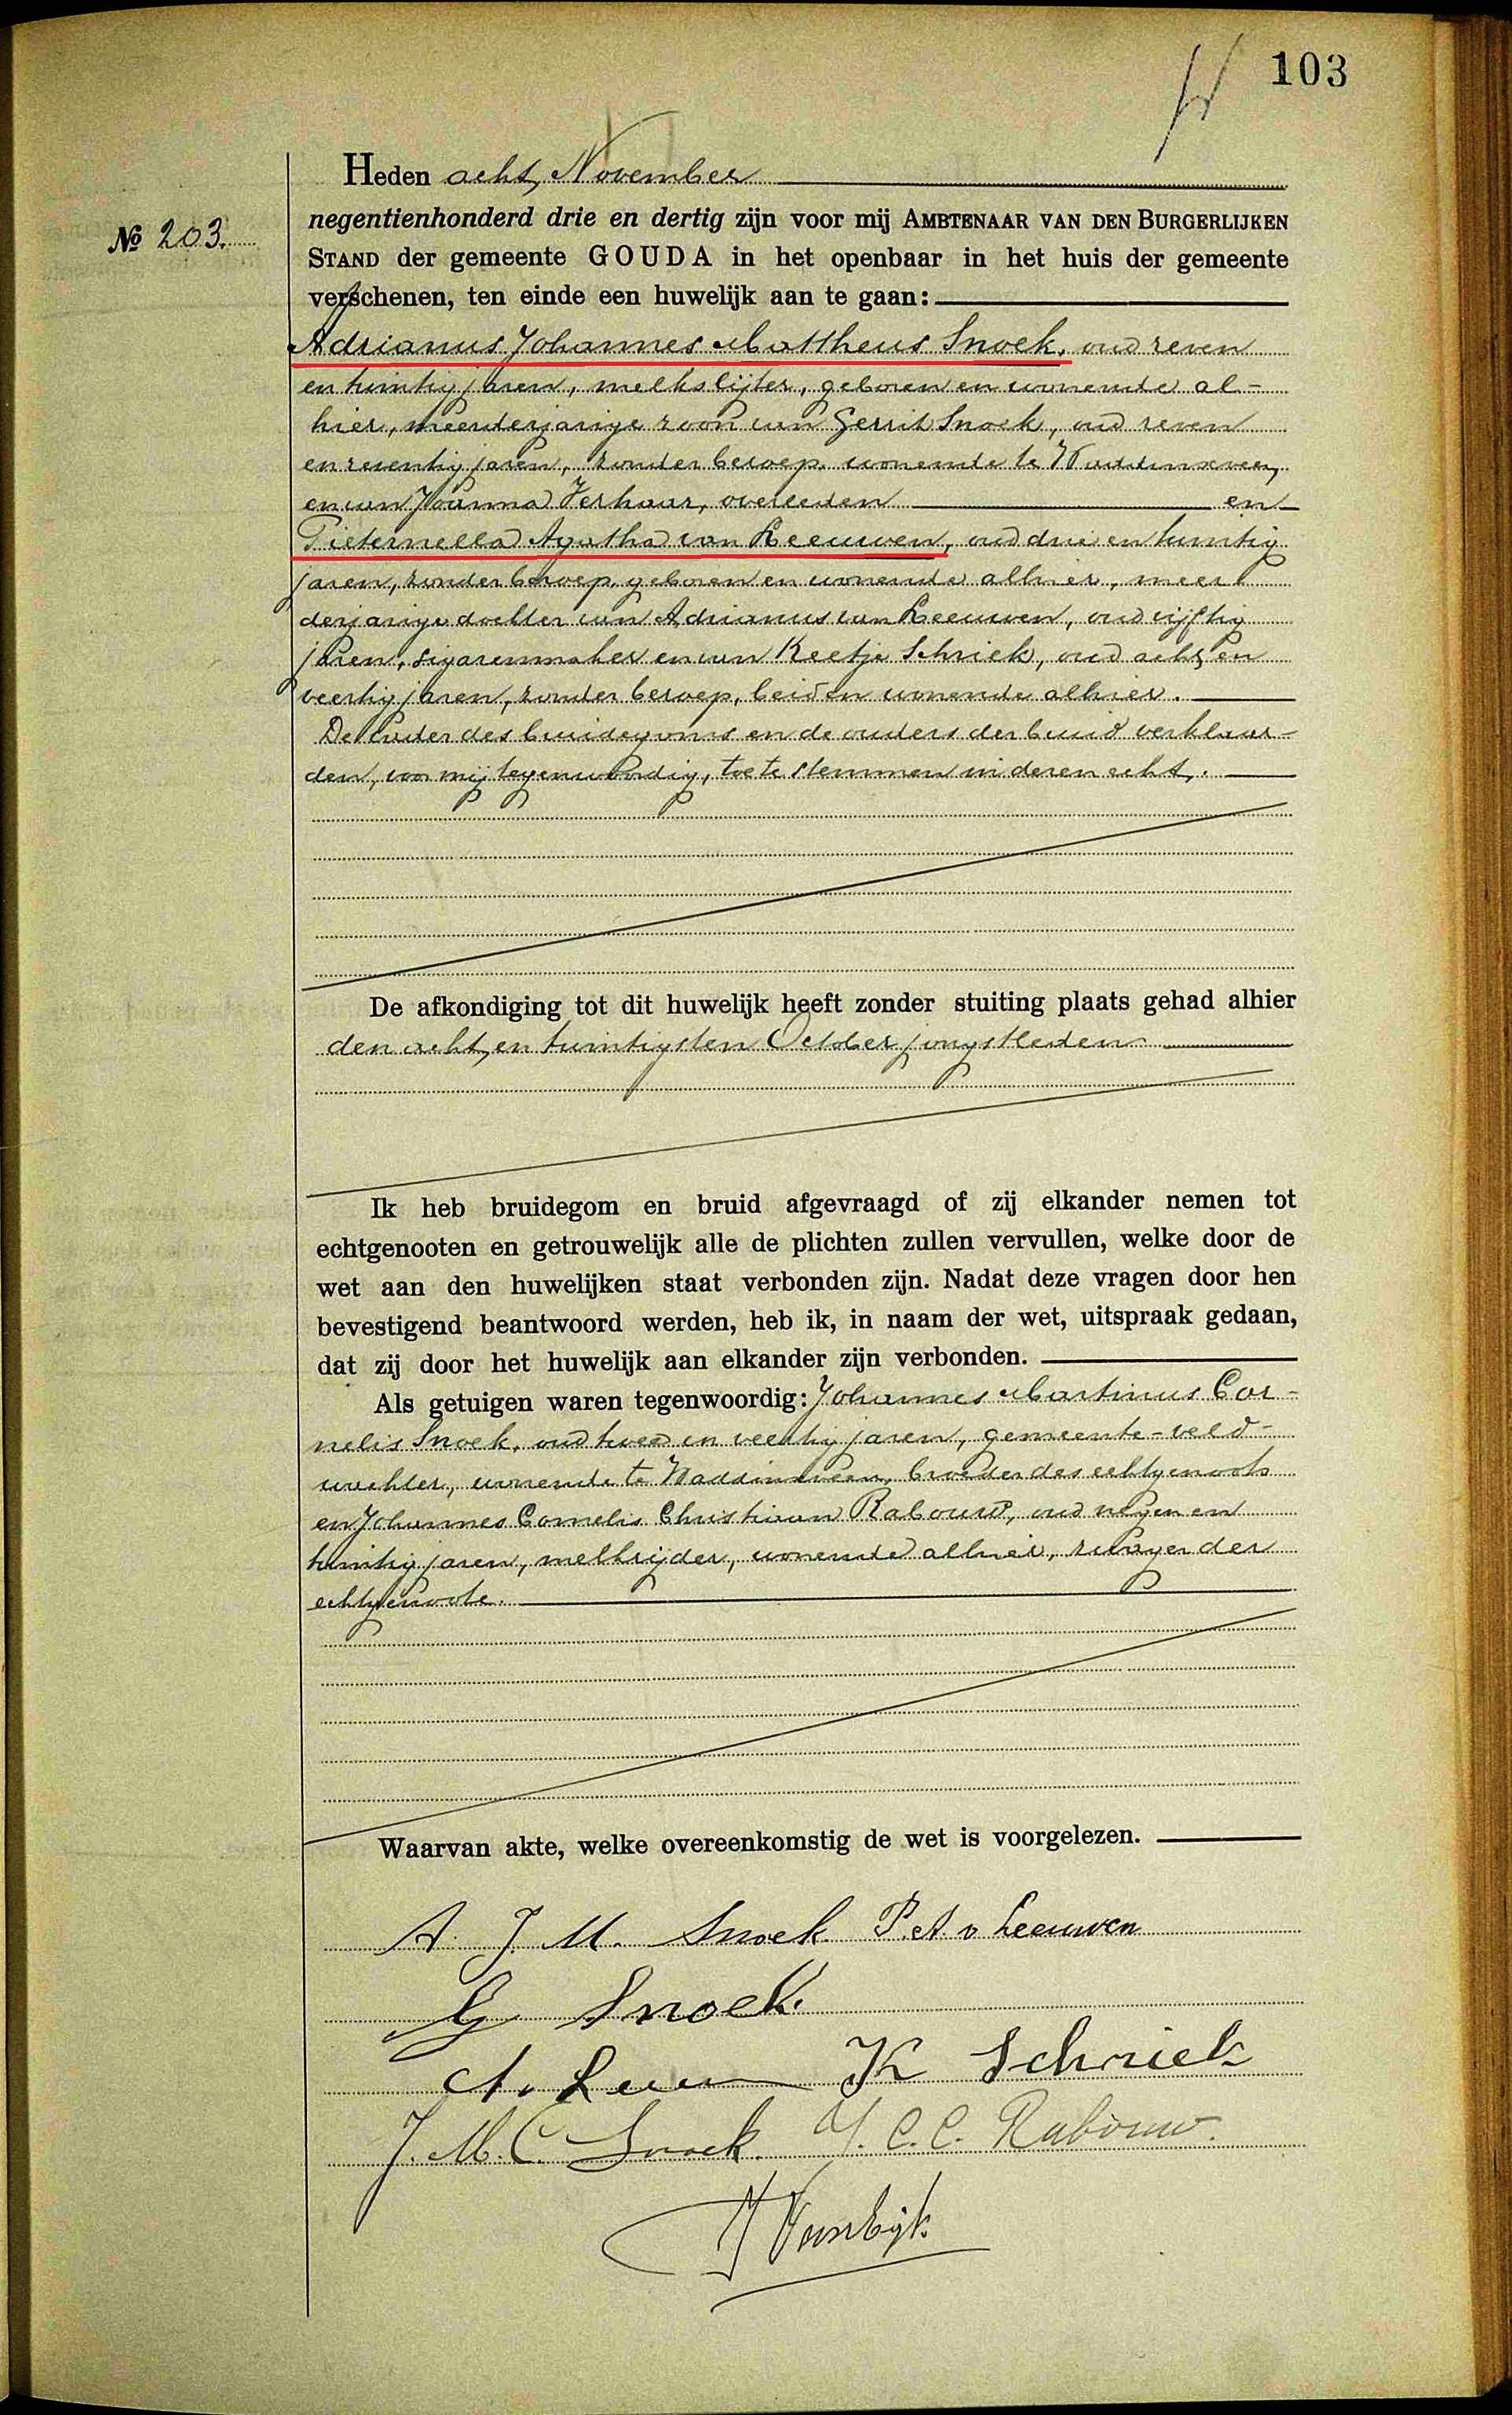 103
Heden acht November
No 203.
negentienhonderd drie en dertig zijn voor mij AMBTENAAR VAN DEN BURGERLIJKEN
STAND der gemeente GOUDA in het openbaar in het huis der gemeente
verschenen, ten einde een huwelijk aan te gaan:
Adrianus Johannes Mattheus Snoek, oud zeven
en twintig jaren, melkslijter, geboren en wonende al-
hier, meerderjarige zoon van Gerrit Snoek, oud zeven
en zeventig jaren, zonder beroep, wonende te Waddinxveen,
en van Joanna Verhaar, overleden en
Pieternella Agatha van Leeuwen, oud drie en twintig
jaren, zonder beroep, geboren en wonende alhier, meer
derjarige dochter van Adrianus van Leeuwen, oud vijftig
jaren, sigarenmaker en van Keetje Schriek, oud acht en
veertig jaren, zonder beroep, beiden wonende alhier.
De vader des bruidegoms en de ouders der bruid verklaar-
den, voor mij tegenwoordig, toe te stemmen in dezen echt.
De afkondiging tot dit huwelijk heeft zonder stuiting plaats gehad alhier
den acht en twintigsten October jongstleden
Ik heb bruidegom en bruid afgevraagd of zij elkander nemen tot
echtgenooten en getrouwelijk alle de plichten zullen vervullen, welke door de
wet aan den huwelijken staat verbonden zijn. Nadat deze vragen door hen
bevestigend beantwoord werden, heb ik, in naam der wet, uitspraak gedaan,
dat zij door het huwelijk aan elkander zijn verbonden.
Als getuigen waren tegenwoordig: Johannes Martinus Cor-
nelis Snoek, oud twee en veertig jaren, gemeente-veld-
wachter, wonende te Waddinxveen, broeder des echtgenoots
en Johannes Cornelis Christiaan Rabouw, oud negen en
twintig jaren, melkrijder, wonende alhier, zwager der
echtgenoote.
Waarvan akte, welke overeenkomstig de wet is voorgelezen.
A. J. M. Snoek P. A. v Leeuwen
G Snoek.
A. v. Leeuwen K Schriek
J. M. C. Snoek. J. C. C. Rabouw.